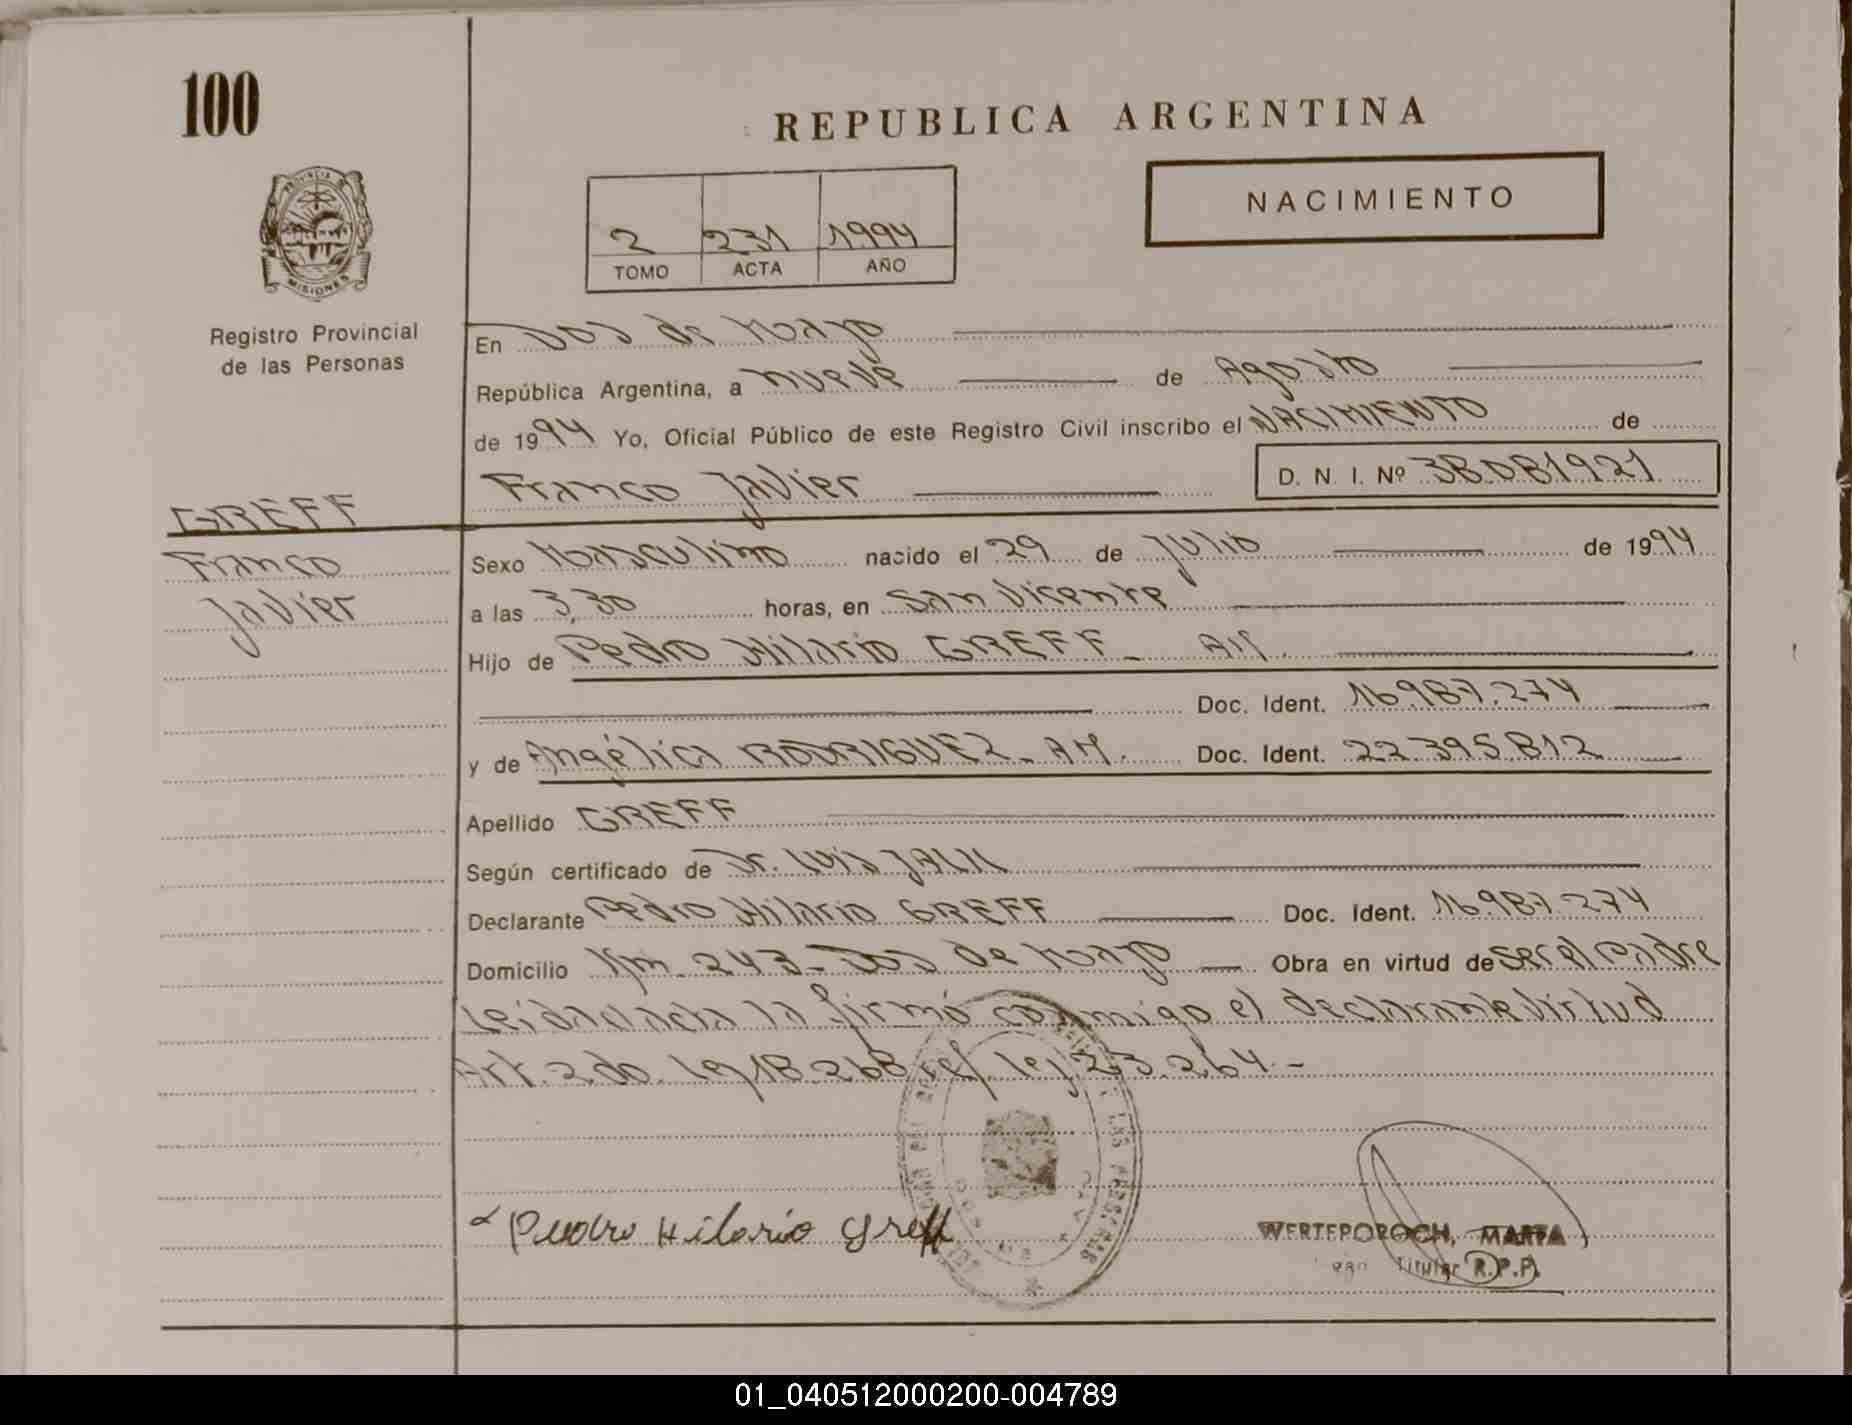 100
REPUBLICA ARGENTINA
NACIMIENTO
2 231 1994
TOMO ACTA AÑO
PROVINCIA DE
MISIONES
Registro Provincial
de las Personas
En Dos de Mayo
República Argentina, a nueve de Agosto
de 1994 Yo, Oficial Público de este Registro Civil inscribo el NACIMIENTO de
Franco Javier D. N. I. Nº 38081921
GREFF
Franco
Javier
Sexo Masculino nacido el 29 de Julio de 1994
a las 3,30 horas, en San Vicente
Hijo de Pedro Hilario GREFF - AM.
Doc. Ident. 16.987.274
y de Angélica RODRIGUEZ - AM. Doc. Ident. 22.395.812
Apellido GREFF
Según certificado de Dr. LUIS JALIL
Declarante Pedro Hilario GREFF Doc. Ident. 16.987.274
Domicilio Km 243 - Dos de Mayo Obra en virtud de ser el padre
Leida el acta la firmó conmigo el declarante virtud
Art. 2do. Ley 18.268 ref. ley 23.264.-
Pedro Hilario Greff
WERTEPOROCH, MARTA
Titular R.P.P.
01_040512000200-004789